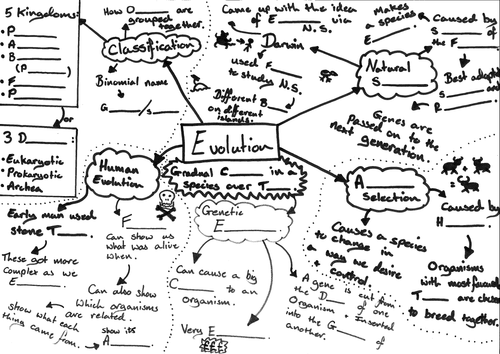 5 Kingdoms:
• P____
• A____
• B____
(P____)
• F____
• P____
or
3 D____:
• Eukaryotic
• Prokaryotic
• Archea
How O____ are
grouped
together.
Classification
Binomial name
G____/s____
Came up with the idea
of E____ via
N.S.
Darwin
used F____
to study
N.S.
Different B____
on different
islands.
Makes
a species
E____.
Natural
S____
Caused by
S____
of the
F____
Best adapted
S____ and
R____
Genes are
passed on to the
next generation.
Evolution
Gradual C____ in a
species over T____
Human
Evolution
Early man used
stone T____
These got more
complex as we
E____
F____
Can show us
what was alive
when.
Can also show
which organisms
are related.
show what each
thing came from.
show its
A____
Genetic
E____
Can cause a big
C____ to an
organism.
Very E____
A gene is cut from
the D____ of one
Organism + Inserted
into the G____ of
another.
A____
Selection
Causes a species
to change in
a way we desire
+ control.
Caused by
H____
Organisms
with most favourable
T____ are chosen
to breed together.